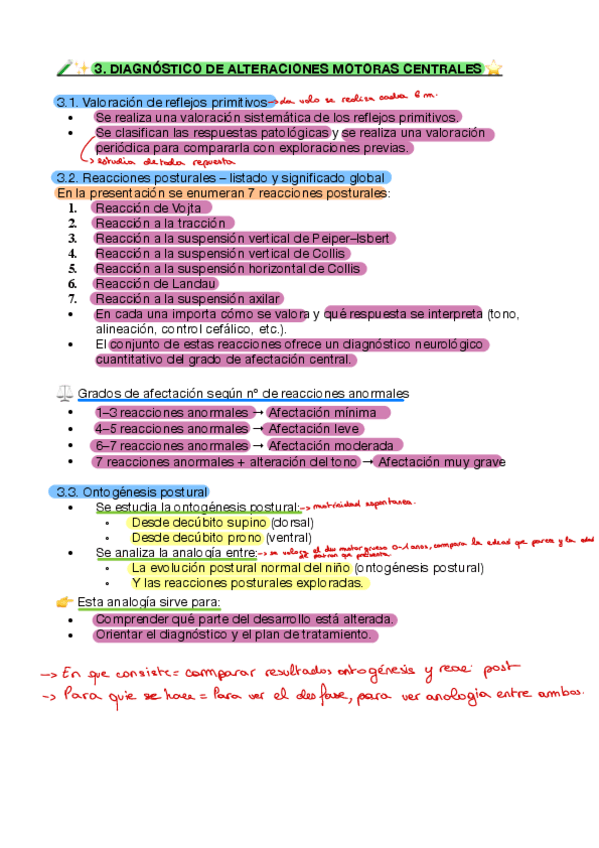 3. DIAGNÓSTICO DE ALTERACIONES MOTORAS CENTRALES
3.1. Valoración de reflejos primitivos → se realiza cada 6 m.
• Se realiza una valoración sistemática de los reflejos primitivos.
• Se clasifican las respuestas patológicas y se realiza una valoración
periódica para compararla con exploraciones previas.
→ estudia de toda repuesta
3.2. Reacciones posturales – listado y significado global
En la presentación se enumeran 7 reacciones posturales:
1. Reacción de Vojta
2. Reacción a la tracción
3. Reacción a la suspensión vertical de Peiper–Isbert
4. Reacción a la suspensión vertical de Collis
5. Reacción a la suspensión horizontal de Collis
6. Reacción de Landau
7. Reacción a la suspensión axilar
• En cada una importa cómo se valora y qué respuesta se interpreta (tono,
alineación, control cefálico, etc.).
• El conjunto de estas reacciones ofrece un diagnóstico neurológico
cuantitativo del grado de afectación central.
⚖️ Grados de afectación según nº de reacciones anormales
• 1–3 reacciones anormales → Afectación mínima
• 4–5 reacciones anormales → Afectación leve
• 6–7 reacciones anormales → Afectación moderada
• 7 reacciones anormales + alteración del tono → Afectación muy grave
3.3. Ontogénesis postural
• Se estudia la ontogénesis postural: → motricidad espontanea.
◦ Desde decúbito supino (dorsal)
◦ Desde decúbito prono (ventral)
• Se analiza la analogía entre: → se valora el motor grueso 0-1 anos, compara la edad que parece y la edad
de patron que presenta
◦ La evolución postural normal del niño (ontogénesis postural)
◦ Y las reacciones posturales exploradas.
👉 Esta analogía sirve para:
• Comprender qué parte del desarrollo está alterada.
• Orientar el diagnóstico y el plan de tratamiento.
→ En que consiste = comparar resultados ontogénesis y reac. post
→ Para que se hace = Para ver el desfase, para ver analogia entre ambos.